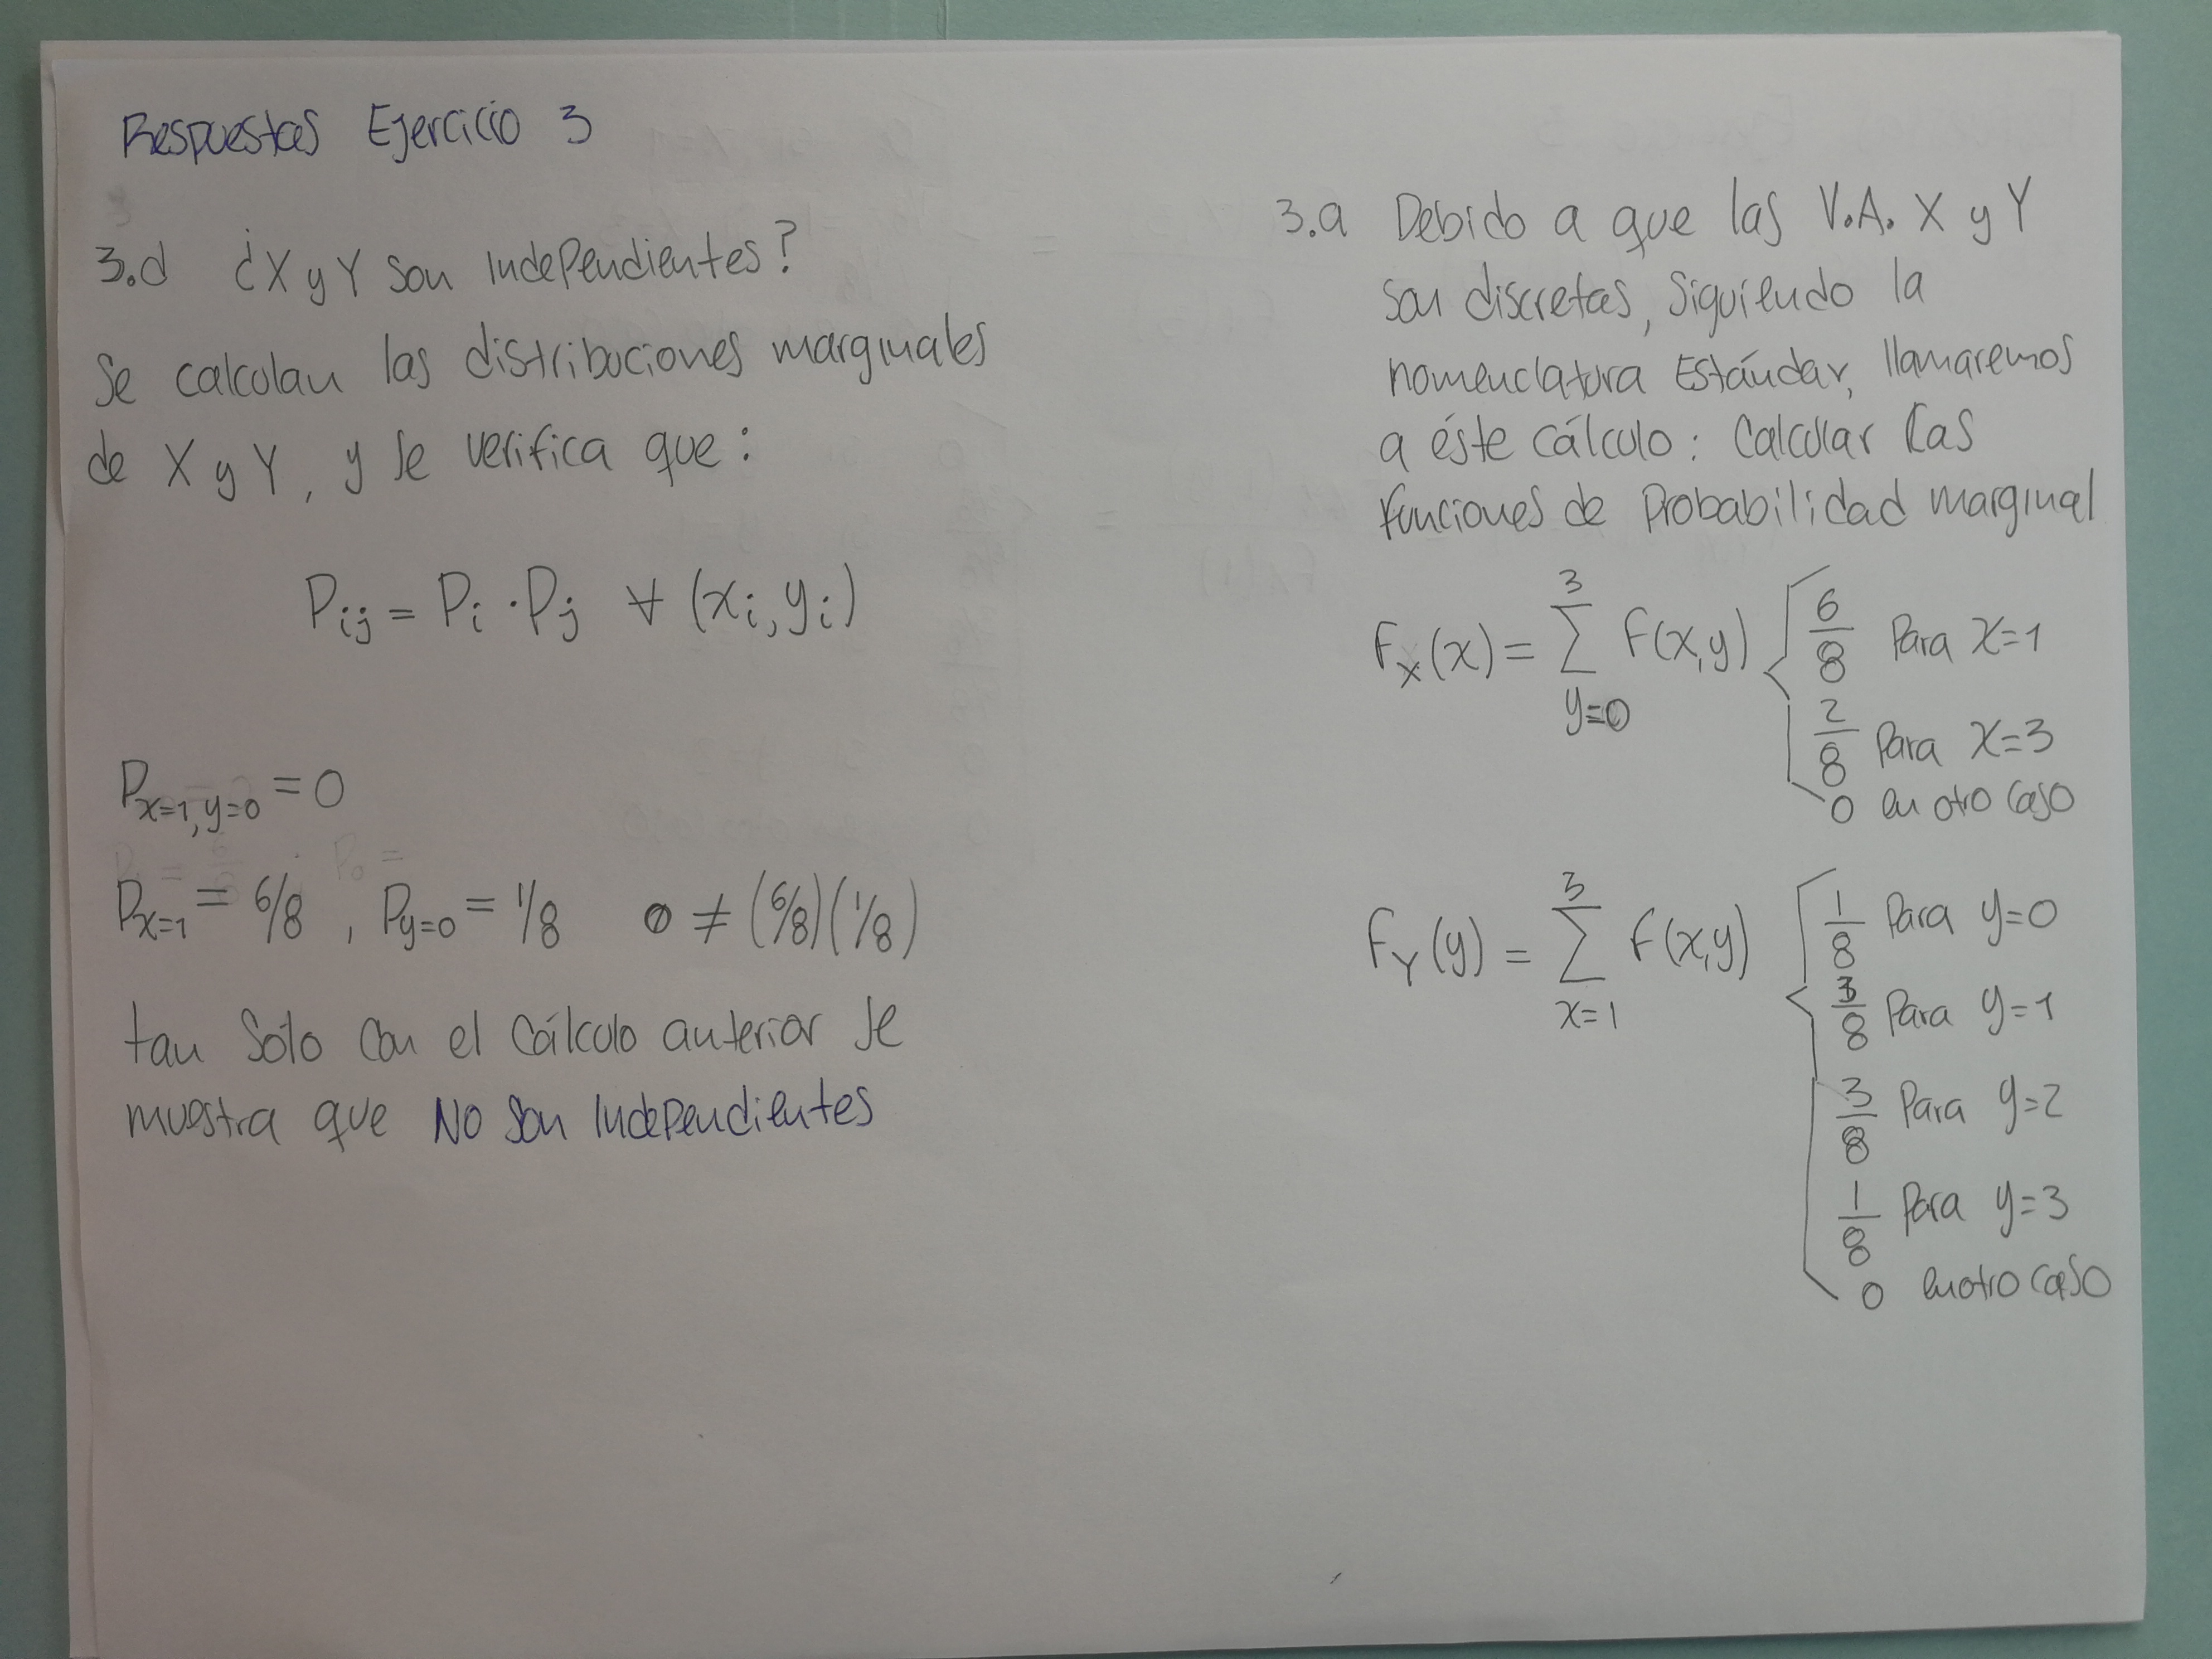 Respuestas Ejercicio 3
3.d ¿X y Y son independientes?
Se calculan las distribuciones marginales
de X y Y, y se verifica que:
P_ij = P_i · P_j ∀ (x_i, y_i)
P_x=1, y=0 = 0
P_x=1 = 6/8 , P_y=0 = 1/8 0 ≠ (6/8)(1/8)
tan solo con el cálculo anterior se
muestra que NO son independientes
3.a Debido a que las V.A. X y Y
son discretas, siguiendo la
nomenclatura estándar, llamaremos
a éste cálculo: Calcular las
funciones de probabilidad marginal
F_X(x) = Σ_{y=0}^{3} F(x,y) { 6/8 Para x=1
2/8 Para x=3
0 en otro caso
F_Y(y) = Σ_{x=1}^{3} F(x,y) { 1/8 Para y=0
3/8 Para y=1
3/8 Para y=2
1/8 Para y=3
0 en otro caso